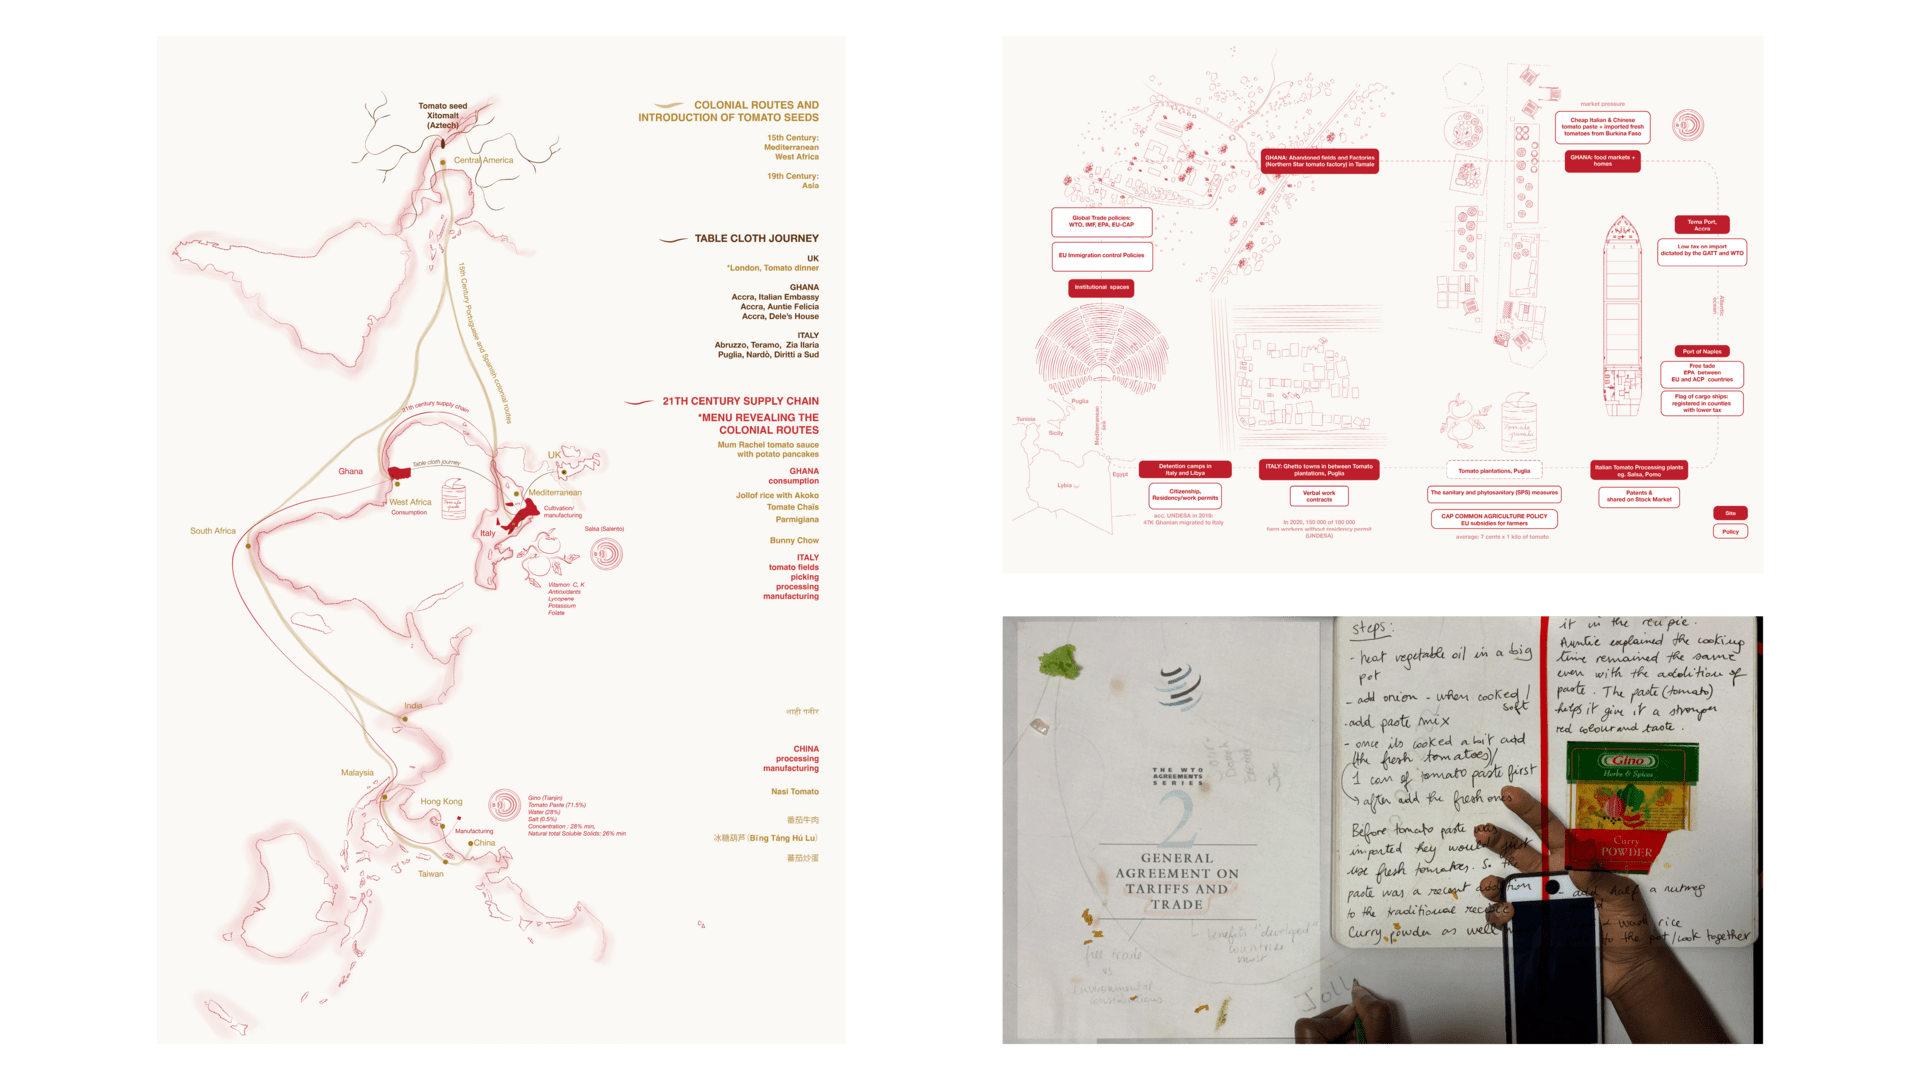 Tomato seed
Xitomalt
(Aztech)
Central America
15th Century Portuguese and Spanish colonial routes
21th century supply chain
Table cloth journey
Ghana
West Africa
Consumption
UK
Mediterranean
Cultivation/
manufacturing
Italy
Salsa (Salento)
South Africa
Vitamon C, K
Antioxidants
Lycopene
Potassium
Folate
India
Malaysia
Hong Kong
Manufacturing
China
Taiwan
Gino (Tianjin)
Tomato Paste (71.5%)
Water (28%)
Salt (0.5%)
Concentration : 28% min,
Natural total Soluble Solids: 26% min
COLONIAL ROUTES AND
INTRODUCTION OF TOMATO SEEDS
15th Century:
Mediterranean
West Africa
19th Century:
Asia
TABLE CLOTH JOURNEY
UK
*London, Tomato dinner
GHANA
Accra, Italian Embassy
Accra, Auntie Felicia
Accra, Dele's House
ITALY
Abruzzo, Teramo, Zia Ilaria
Puglia, Nardò, Diritti a Sud
21TH CENTURY SUPPLY CHAIN
*MENU REVEALING THE
COLONIAL ROUTES
Mum Rachel tomato sauce
with potato pancakes
GHANA
consumption
Jollof rice with Akoko
Tomate Chaïs
Parmigiana
Bunny Chow
ITALY
tomato fields
picking
processing
manufacturing
शाही पनीर
CHINA
processing
manufacturing
Nasi Tomato
番茄牛肉
冰糖葫芦 (Bīng Táng Hú Lu)
蕃茄炒蛋
market pressure
Cheap Italian & Chinese
tomato paste + imported fresh
tomatoes from Burkina Faso
GHANA: Abandoned fields and Factories
(Northern Star tomato factory) in Tamale
GHANA: food markets +
homes
Global Trade policies:
WTO, IMF, EPA, EU-CAP
EU Immigration control Policies
Institutional spaces
Tema Port,
Accra
Low tax on import
dictated by the GATT and WTO
Atlantic
ocean
Port of Naples
Free tade
EPA between
EU and ACP countries
Flag of cargo ships:
registered in counties
with lower tax
Puglia
Tunisia
Sicily
Mediterranean
sea
Egypt
Lybia
Detention camps in
Italy and Libya
Citizenship,
Residency/work permits
acc. UNDESA in 2019:
47K Ghanian migrated to Italy
ITALY: Ghetto towns in between Tomato
plantations, Puglia
Verbal work
contracts
In 2020, 150 000 of 180 000
farm workers without residency permit
(UNDESA)
Tomato plantations, Puglia
The sanitary and phytosanitary (SPS) measures
CAP COMMON AGRICULTURE POLICY
EU subsidies for farmers
average: 7 cents x 1 kilo of tomato
Italian Tomato Processing plants
eg. Salsa, Pomo
Patents &
shared on Stock Market
Site
Policy
THE WTO
AGREEMENTS
SERIES
2
GENERAL
AGREEMENT ON
TARIFFS AND
TRADE
benefits "developed"
countries
most
free trade
vs
Environmental
considerations
Joll
steps:
- heat vegetable oil in a big
pot
- add onion - when cooked /
soft
- add paste mix
- once its cooked a bit add
(the fresh tomatoes)/
1 can of tomato paste first
after add the fresh ones
Before tomato paste was
imported they would just
use fresh tomatoes. So the
paste was a recent addition
to the traditional recipe
Curry powder as well
it in the recipie.
Auntie explained the cooking
time remained the same
even with the addition of
paste. The paste (tomato)
helps it give it a stronger
red colour and taste.
Gino
Herbs & Spices
Curry
POWDER
- add half a nutmeg
wash rice
to the pot/cook together